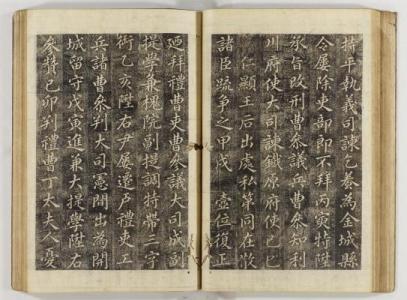 持平執義司諫乞養為金城縣
令屢除吏部即不拜丙寅特陞
承旨改刑曹參議兵曹參知利
川府使大司諫鐵原府使己巳
仁顯王后出處私第同在散
諸臣疏爭之甲戌 壼位復正
廼拜禮曹吏曹參議大司成副
提學兼槐院副提調特帶三字
銜乙亥陞右尹屢遷戶禮吏工
兵諸曹參判大司憲間出為開
城留守戊寅進兼大提學陞右
參賛己卯判禮曹丁太夫人憂